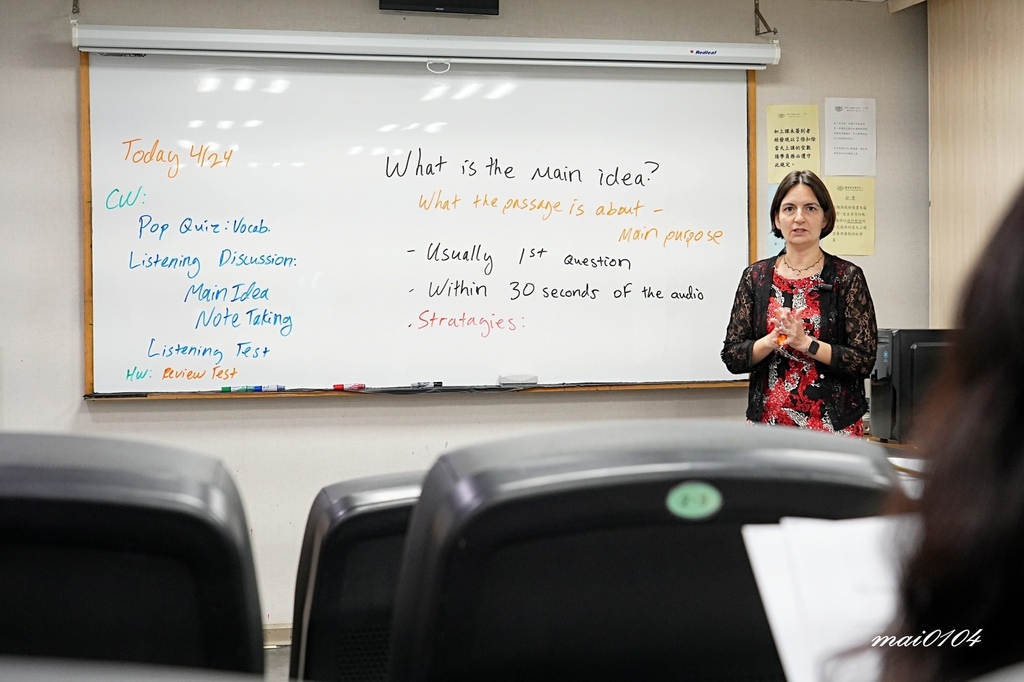 Redleaf
Today 4/24
CW:
Pop Quiz: Vocab.
Listening Discussion:
Main Idea
Note Taking
Listening Test
HW: Review Test
What is the Main idea?
What the passage is about -
Main purpose
- Usually 1st question
- Within 30 seconds of the audio
. Stratagies:
如上課未簽到者
將發現以2倍扣除
當天上課的堂數
請學員務必遵守
此規定。
mai0104